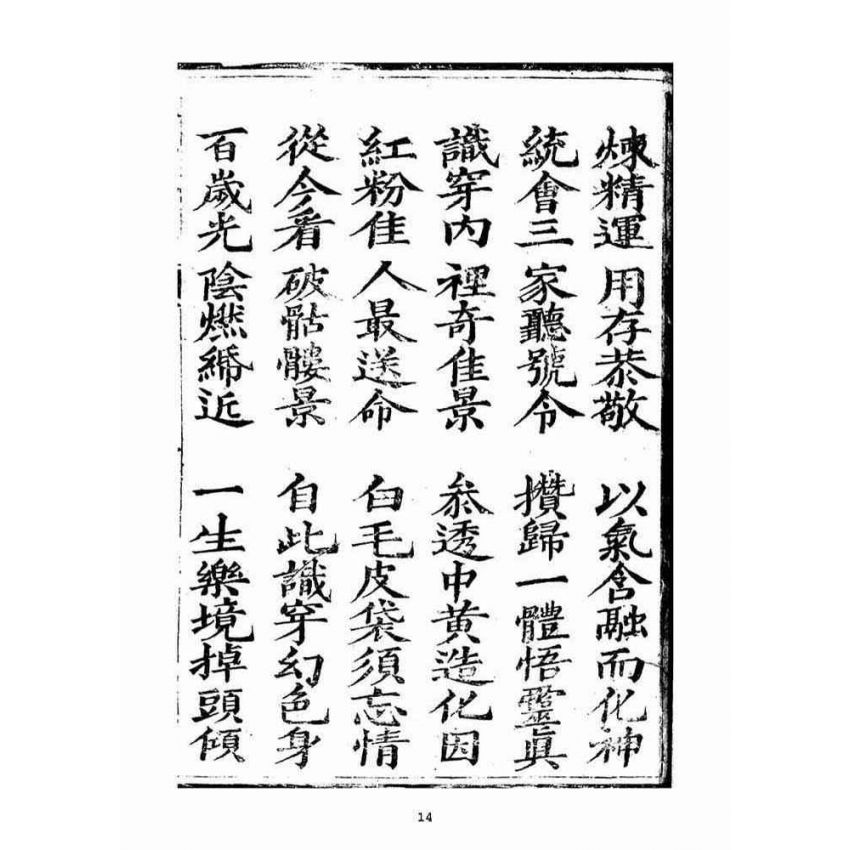 煉精運用存恭敬　以氣含融而化神
統會三家聽號令　攢歸一體悟靈眞
識穿內裡奇佳景　叅透中黄造化因
紅粉佳人最送命　白毛皮袋須忘情
從今看破骷髏景　自此識穿幻色身
百歲光陰燃𦈏近　一生樂境掉頭傾
14